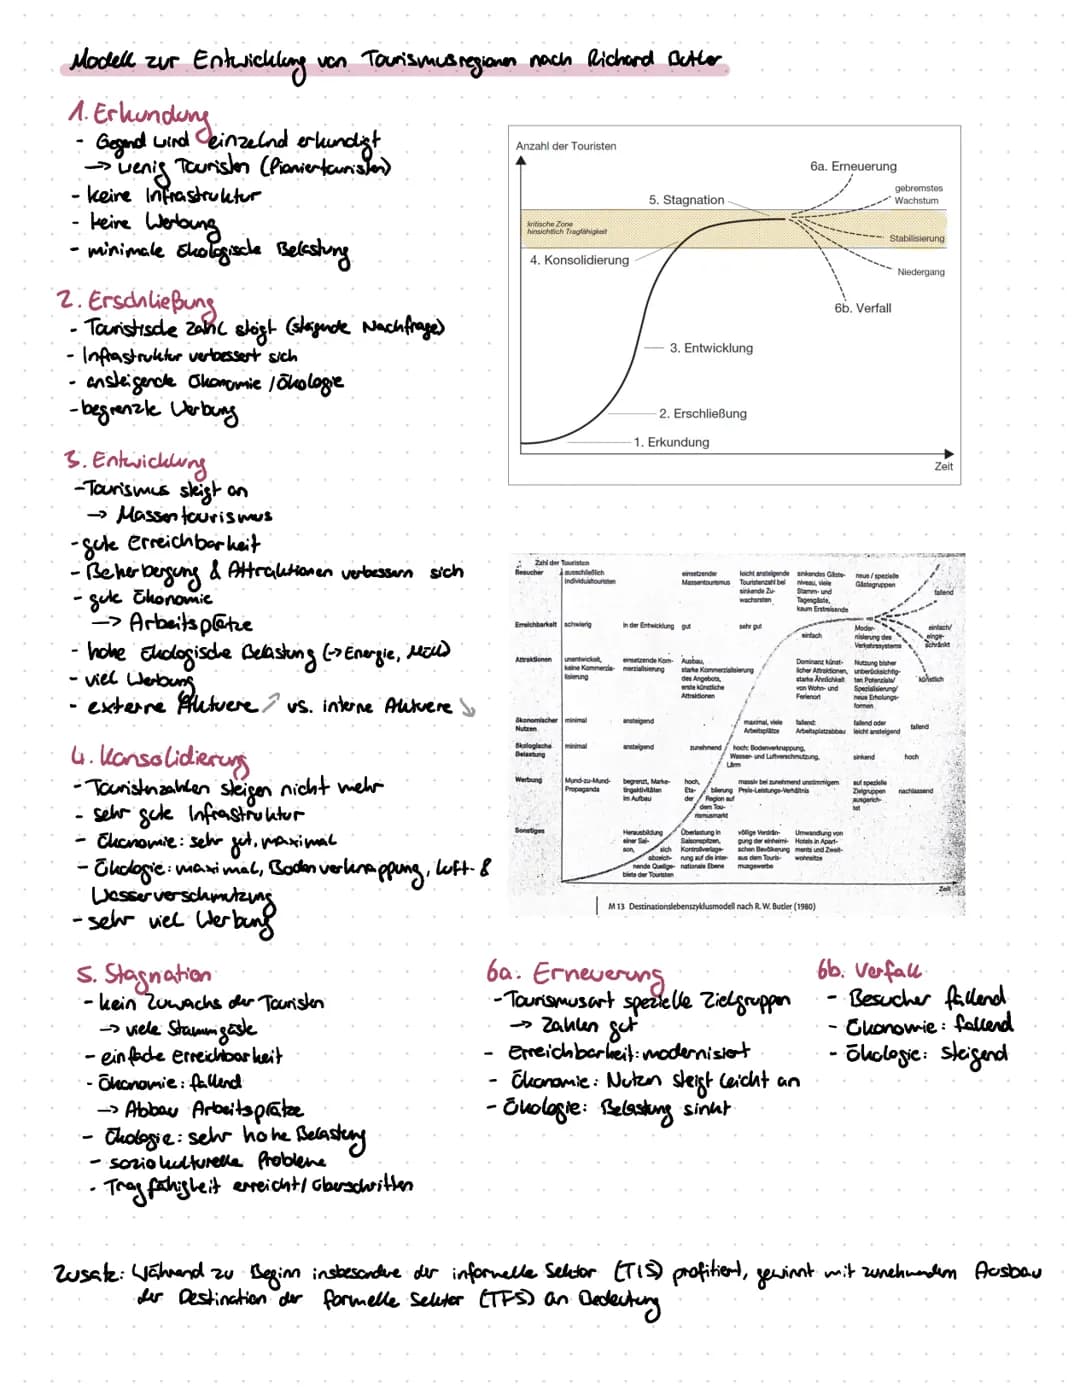 Modell zur Entwicklung von Tourismusregionen nach Richard Butler
1. Erkundung
- Gegend wird einzelnd erkundigt
→ wenig Touristen (Pioniertouristen)
- keine Infrastruktur
- keine Werbung
- minimale ökologische Belastung
2. Erschließung
- Touristische Zahl steigt (steigende Nachfrage)
- Infrastruktur verbessert sich
- ansteigende Ökonomie / Ökologie
- begrenzte Werbung
3. Entwicklung
- Tourismus steigt an
→ Massentourismus
- gute Erreichbarkeit
- Beherbergung & Attraktionen verbessern sich
- gute Ökonomie
→ Arbeitsplätze
- hohe Ökologische Belastung (→ Energie, Müll)
- viel Werbung
- externe Akteure ↗ vs. interne Akteure ↘
4. Konsolidierung
- Touristenzahlen steigen nicht mehr
- sehr gute Infrastruktur
- Ökonomie: sehr gut, maximal
- Ökologie: maximal, Bodenverknappung, Luft- &
Wasserverschmutzung
- sehr viel Werbung
Anzahl der Touristen
6a. Erneuerung
gebremstes
Wachstum
5. Stagnation
kritische Zone
hinsichtlich Tragfähigkeit
Stabilisierung
4. Konsolidierung
Niedergang
6b. Verfall
3. Entwicklung
2. Erschließung
1. Erkundung
Zeit
Zahl der Touristen
Besucher
ausschließlich
Individualtouristen
einsetzender
Massentourismus
leicht ansteigende
Touristenzahl bei
sinkende Zu-
wachsraten
sinkendes Gäste-
niveau, viele
Stamm- und
Tagesgäste,
kaum Erstreisende
neue / spezielle
Gästegruppen
fallend
Erreichbarkeit
schwierig
in der Entwicklung
gut
sehr gut
einfach
Moder-
nisierung des
Verkehrssystems
einfach/
einge-
schränkt
Attraktionen
unentwickelt,
keine Kommerzia-
lisierung
einsetzende Kom-
merzialisierung
Ausbau,
starke Kommerzialisierung
des Angebots,
erste künstliche
Attraktionen
Dominanz künst-
licher Attraktionen,
starke Ähnlichkeit
von Wohn- und
Ferienort
Nutzung bisher
unberücksichtig-
ten Potenzials/
Spezialisierung/
neue Erholungs-
formen
künstlich
Ökonomischer
Nutzen
minimal
ansteigend
maximal, viele
Arbeitsplätze
fallend:
Arbeitsplatzabbau
fallend oder
leicht ansteigend
fallend
Ökologische
Belastung
minimal
ansteigend
zunehmend
hoch: Bodenverknappung,
Wasser- und Luftverschmutzung,
Lärm
sinkend
hoch
Werbung
Mund-zu-Mund-
Propaganda
begrenzt, Marke-
tingaktivitäten
im Aufbau
hoch,
Eta-blierung
der Region auf
dem Tou-
rismusmarkt
massiv bei zunehmend unstimmigem
Preis-Leistungs-Verhältnis
auf spezielle
Zielgruppen
ausgerich-
tet
nachlassend
Sonstiges
Herausbildung
einer Sai-
son,
sich
abzeich-
nende Quellge-
biete der Touristen
Überlastung in
Saisonspitzen,
Kontrollverlage-
rung auf die inter-
nationale Ebene
völlige Verdrän-
gung der einheimi-
schen Bevölkerung
aus dem Touris-
musgewerbe
Umwandlung von
Hotels in Apart-
ments und Zweit-
wohnsitze
Zeit
M 13 Destinationslebenszyklusmodell nach R. W. Butler (1980)
5. Stagnation
- kein Zuwachs der Touristen
→ viele Stammgäste
- einfache Erreichbarkeit
- Ökonomie: fallend
→ Abbau Arbeitsplätze
- Ökologie: sehr hohe Belastung
- soziokulturelle Probleme
- Tragfähigkeit erreicht/ überschritten
6a. Erneuerung
- Tourismusart spezielle Zielgruppen
→ Zahlen gut
- Erreichbarkeit: modernisiert
- Ökonomie: Nutzen steigt leicht an
- Ökologie: Belastung sinkt
6b. Verfall
- Besucher fallend
- Ökonomie: fallend
- Ökologie: steigend
Zusatz: Während zu Beginn insbesondere der informelle Sektor (TIS) profitiert, gewinnt mit zunehmendem Ausbau
der Destination der formelle Sektor (TFS) an Bedeutung